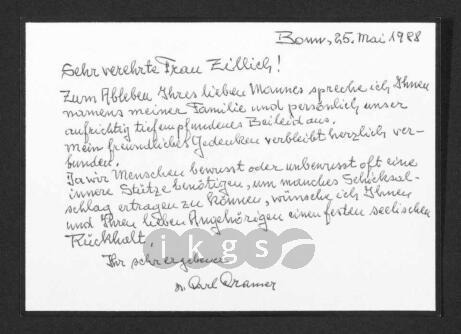 Bonn, 25. Mai 1988
Sehr verehrte Frau Zillich!
Zum Ableben Ihres lieben Mannes spreche ich Ihnen
namens meiner Familie und persönlich unser
aufrichtig tiefempfundenes Beileid aus.
Mein freundliches Gedenken verbleibt herzlich ver-
bunden.
Da wir Menschen bewusst oder unbewusst oft eine
innere Stütze benötigen, um manches Schicksal-
schlag ertragen zu können, wünsche ich Ihnen
und Ihren lieben Angehörigen einen festen seelischen
Rückhalt.
ikgs
Ihr sehr ergebener
Dr. Carl